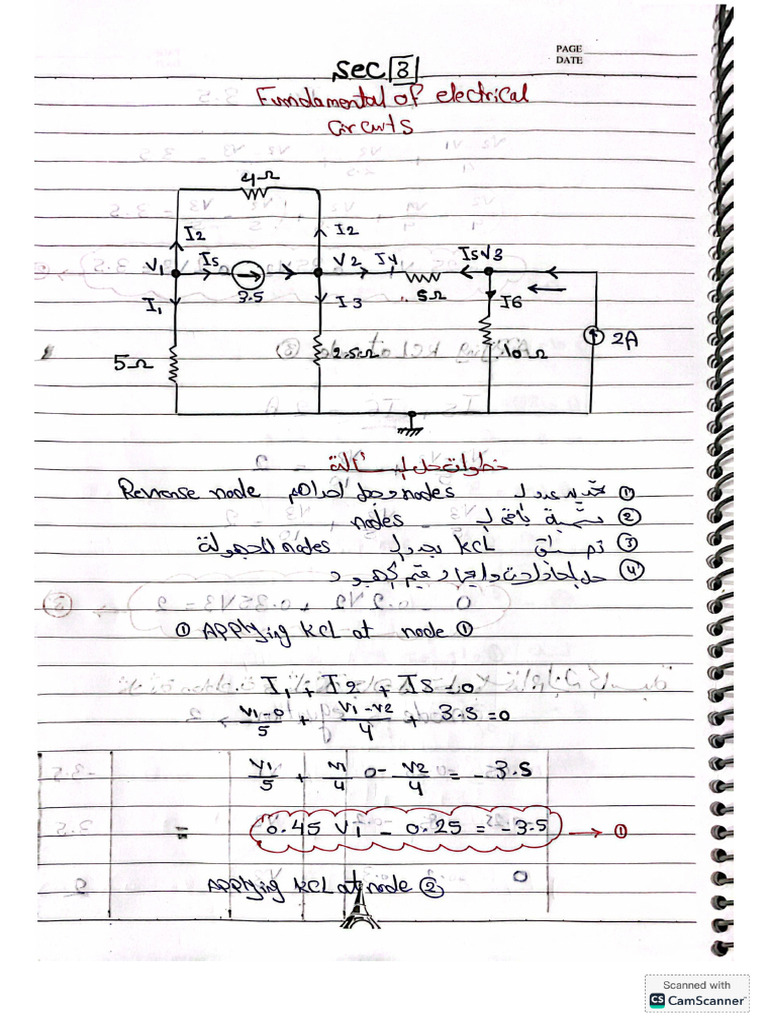 PAGE
DATE
Sec 3
Fundamental of electrical
circuits
4Ω
I2
I2
V1
Is
V2
I4
I5
V3
3.5
5Ω
I1
I3
I6
2A
5Ω
2.5Ω
10Ω
خطوات حل المسألة
① تحديد عدد الـ nodes وجعل احداهم Reverse node
② تسمية باقي الـ nodes
③ KCL nodes المجهولة
④ حل المعادلات وايجاد قيم الجهود
① APPlying KCL at node ①
I1 + I2 + Is = 0
V1-0/5 + V1-V2/4 + 3.5 = 0
V1/5 + V1/4 - V2/4 = -3.5
= 0.45 V1 - 0.25 = -3.5 → ①
APPlying KCL at node ②
Scanned with
CS CamScanner